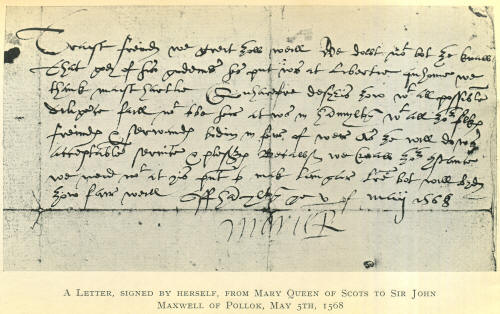 Traist freind we greit zow weill We dowt nocht bot ze knaw
that god of his gudenes hes put ws at libertie quhome we
thank maist hartlie Quharfore desyris zow wt all possible
diligence faill nocht to be heir at ws in Hamyltoun wt all zor folkis
freindis & servandis bodin in feir of weir as ze will do ws
acceptable service & plessor Becaus we knaw zor constance
we neid nocht at yis put to mak langar lre bot will byd
zow fair weill Off Hamyltoun ye v of Maij 1568
Marie R
A Letter, signed by herself, from Mary Queen of Scots to Sir John
Maxwell of Pollok, May 5th, 1568